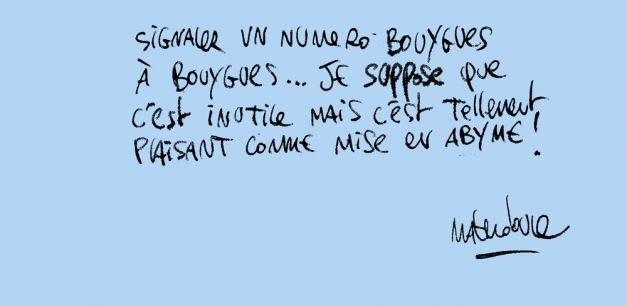 SIGNALER UN NUMERO BOUYGUES
À BOUYGUES... JE SUPPOSE QUE
C'EST INUTILE MAIS C'EST TELLEMENT
PLAISANT COMME MISE EN ABYME!